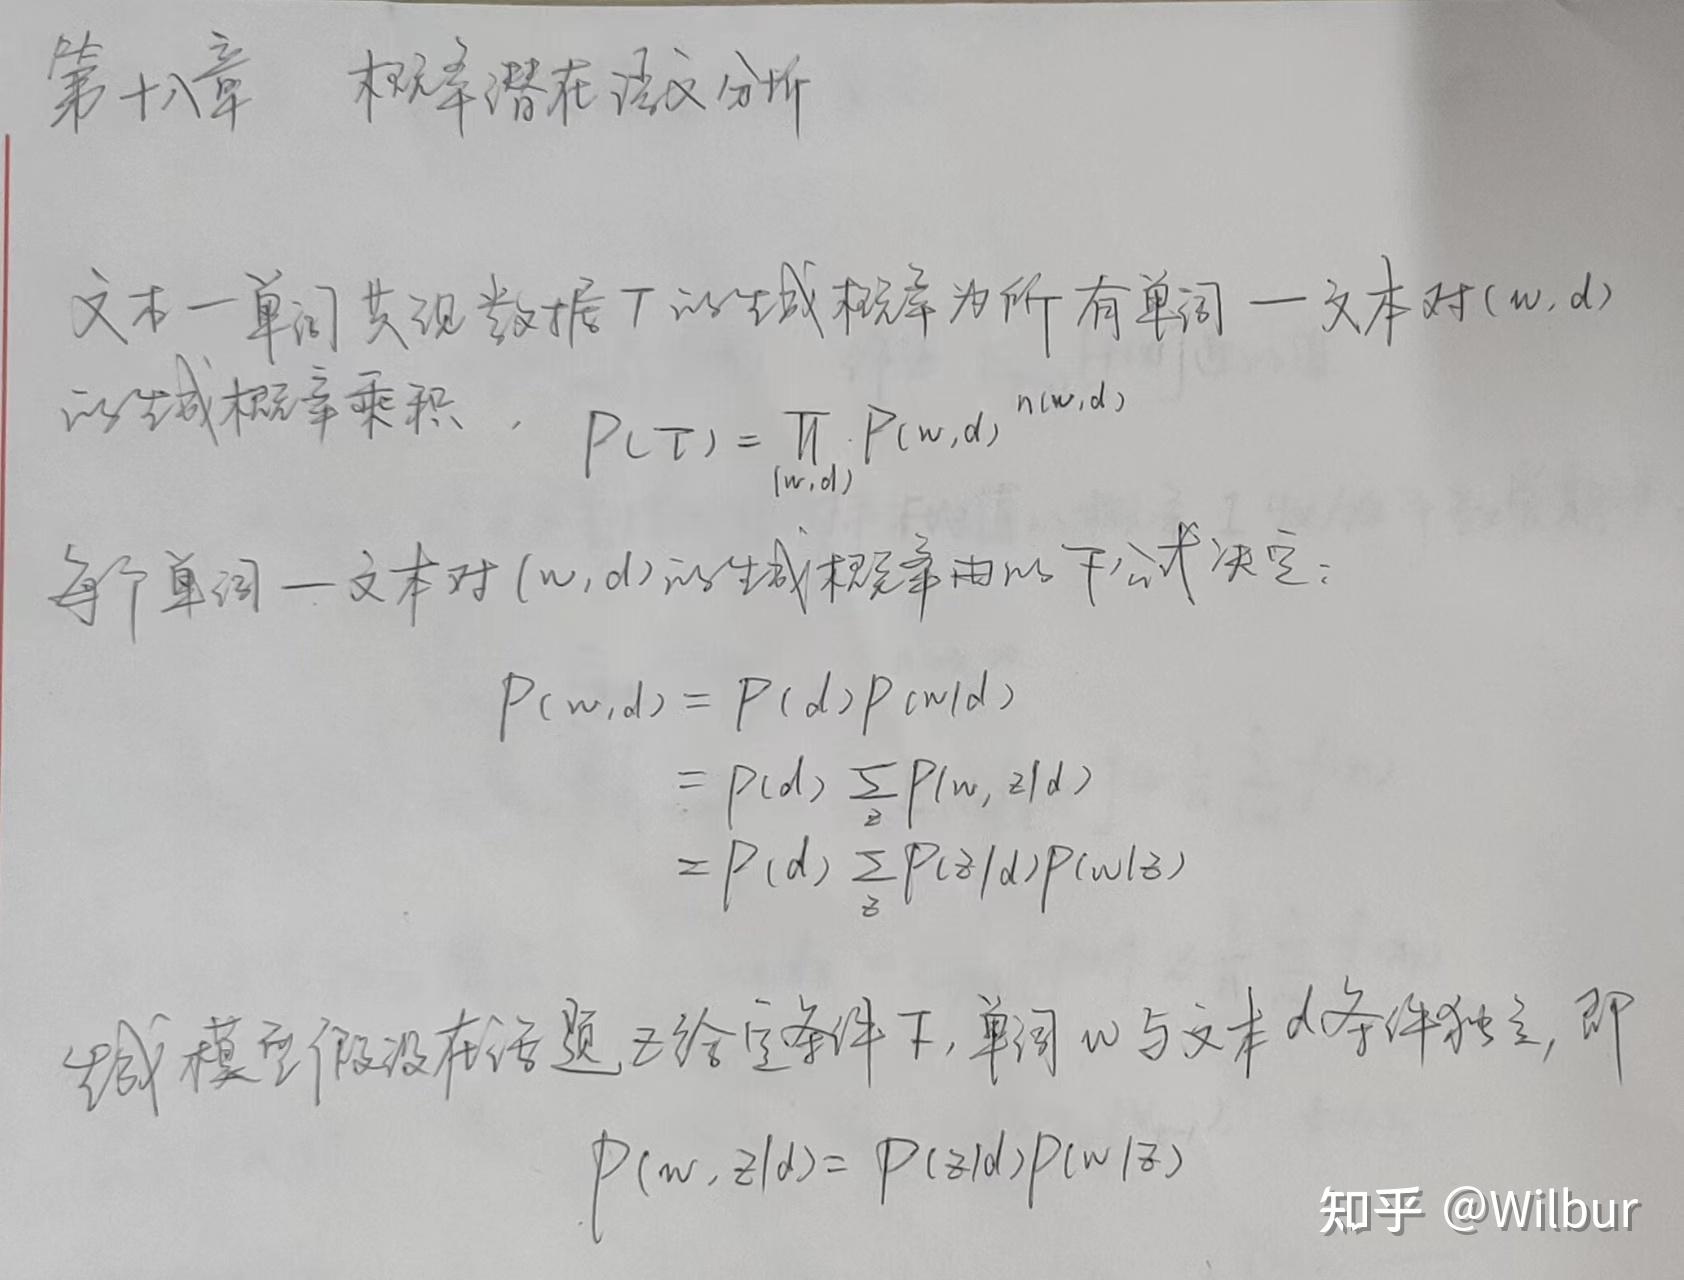 第十八章 概率潜在语义分析
文本一单词共现数据T的生成概率为所有单词一文本对(w,d)
的生成概率乘积,
P(T) = ∏_{(w,d)} P(w,d)^{n(w,d)}
每个单词一文本对(w,d)的生成概率由以下公式决定:
P(w,d) = P(d)P(w|d)
= P(d) ∑_z P(w,z|d)
= P(d) ∑_z P(z|d)P(w|z)
生成模型假设在话题z给定条件下,单词w与文本d条件独立,即
P(w,z|d) = P(z|d)P(w|z)
知乎 @Wilbur